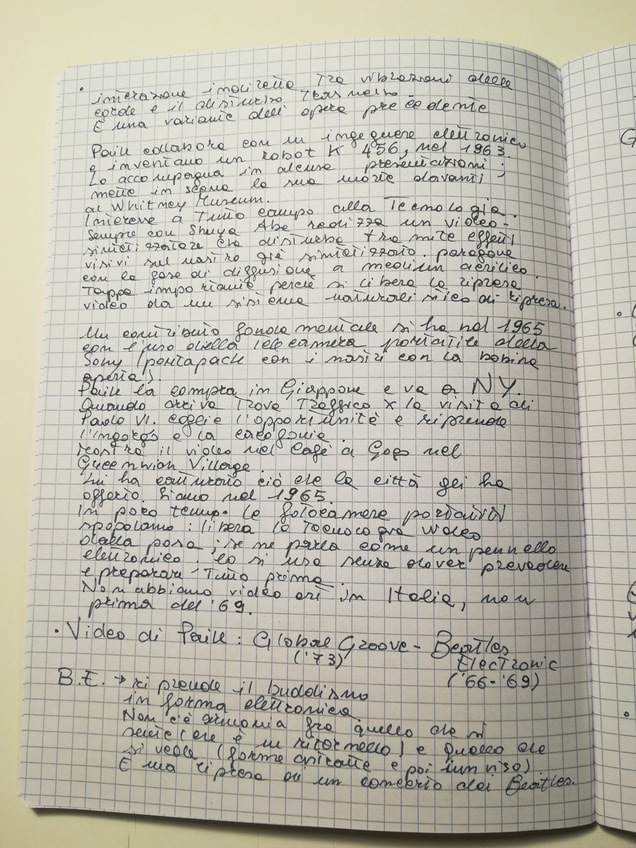 • interazione indiretta tra vibrazioni delle
corde e il disturbo
È una variante dell'opera precedente
Paik collabora con un ingegnere elettronico
e inventano un robot K 456, nel 1963.
Lo accompagna in alcune presentazioni;
mette in scena la sua morte davanti
al Whitney Museum.
Interesse a tutto campo alla Tecnologia.
Sempre con Shuya Abe realizza un video-
sintetizzatore che disturba tramite effetti
visivi sul nastro già sintetizzato. paragone
con la fase di diffusione a medium acrilico.
Tappa importante perché si libera la ripresa
video da un sistema naturalistico di ripresa.
Un contributo fondamentale si ha nel 1965
con l'uso della telecamera portatile della
Sony (portapack con i nastri con la bobina
aperta).
Paik la compra in Giappone e va a NY.
Quando arriva trova traffico x la visita di
Paolo VI. coglie l'opportunità e riprende
l'ingorgo e la cacofonia.
Mostra il video nel Cafè a Gogo nel
Greenwich Village.
Lui ha catturato ciò che la città gli ha
offerto. Siamo nel 1965.
In poco tempo le fotocamere portatili
spopolano: libera la Tecnologia video
dalla posa; se ne parla come un pennello
elettronico, lo si usa senza dover prevedere
e preparare tutto prima.
Non abbiamo video art in Italia, non
prima del '69.
• Video di Paik: Global Groove - Beatles
('73) Electronic
('66-'69)
B.E. → si prende il buddismo
in forma elettronica
Non c'è armonia fra quello che si
sente (che è un ritornello) e quello che
si vede (forme astratte e poi un viso)
È una ripresa di un concerto dei Beatles.